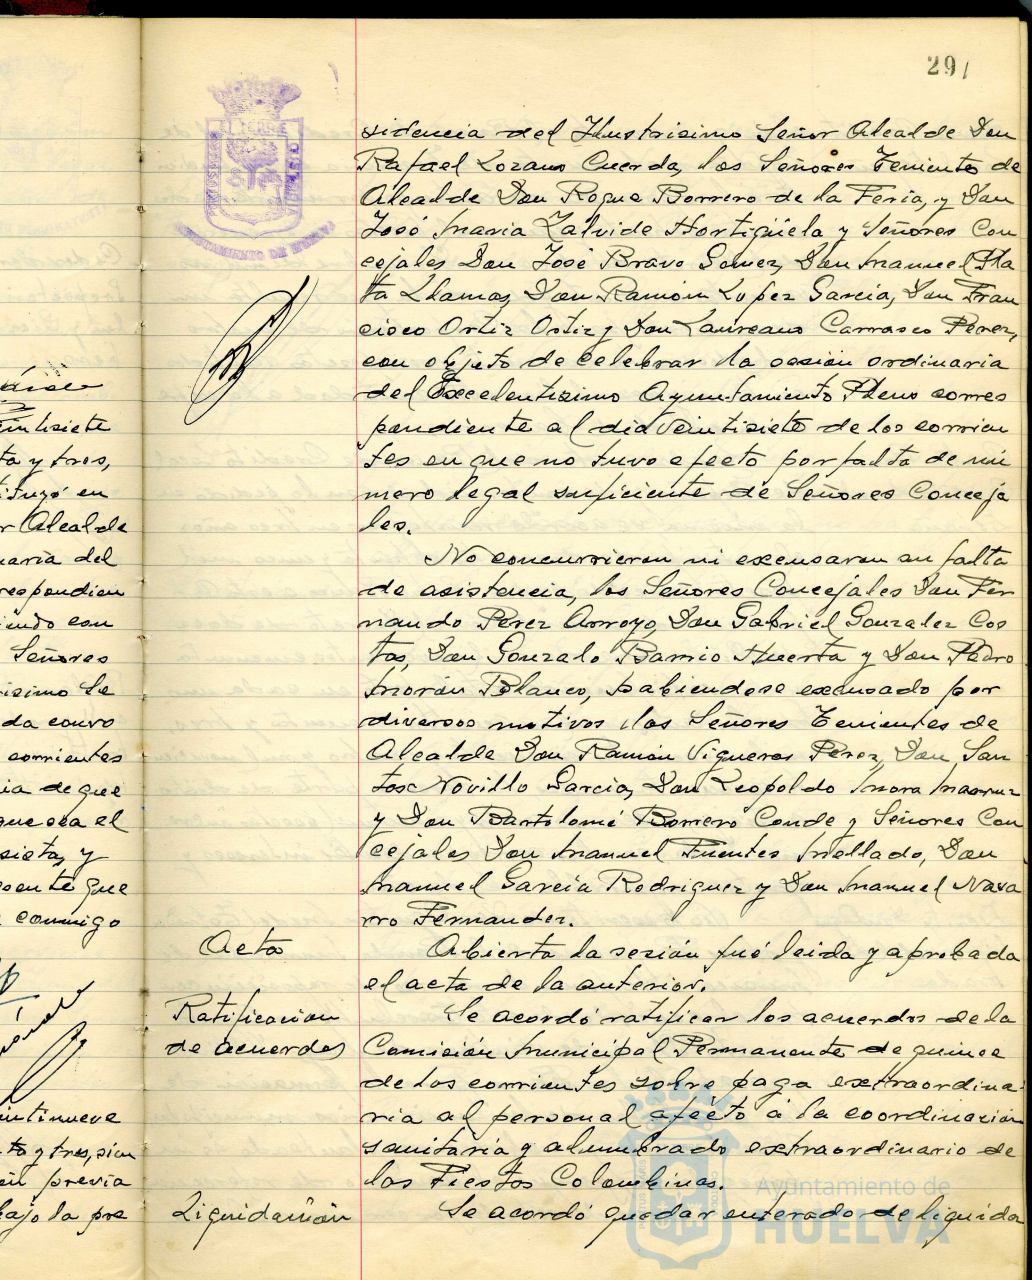 291
sidencia del Ilustrisimo Señor Alcalde Don
Rafael Lozano Cuerda, los Señores Teniente de
Alcalde Don Roque Borrero de la Feria, y Don
José Maria Zalvide Hortigüela y Señores Con
cejales Don José Bravo Gomez, Don Manuel Pla
ta Llamas, Don Ramón Lopez Garcia, Don Fran
cisco Ortiz Ortiz y Don Laureano Carrasco Perez,
con objeto de celebrar la sesión ordinaria
del Excelentisimo Ayuntamiento Pleno corres
pondiente al dia veintisiete de los corrien
tes en que no tuvo efecto por falta de nú
mero legal suficiente de Señores Conceja
les.
No concurrieron ni excusaron su falta
de asistencia, los Señores Concejales Don Fer
nando Perez Arroyo, Don Gabriel Gonzalez Cos
tas, Don Gonzalo Barrio Huerta y Don Pedro
Morón Blanco, habiendose excusado por
diversos motivos los Señores Tenientes de
Alcalde Don Ramón Vigueras Perez, Don San
tos Novillo Garcia, Don Leopoldo Mora
y Don Bartolomé Borrero Conde y Señores Con
cejales Don Manuel Fuentes Mellado, Don
Manuel Garcia Rodriguez y Don Manuel Nava
rro Fernandez.
Acta
Abierta la sesión fué leida y aprobada
el acta de la anterior.
Ratificacion
de acuerdos
Se acordó ratificar los acuerdos de la
Comisión Municipal Permanente de quince
de los corrientes sobre paga extraordina
ria al personal afecto á la coordinación
sanitaria y alumbrado extraordinario de
las Fiestas Colombinas.
Liquidación
Se acordó quedar enterado de liquida
eintisiete
ta y tres,
tituyó en
r Alcalde
naria del
respondien
iendo con
Señores
risimo Se
da convo
corrientes
ia de que
que sea el
sista, y
sente que
conmigo
intinueve
ta y tres, sien
en previa
bajo la pre
AYUNTAMIENTO DE HUELVA
Ayuntamiento de
HUELVA